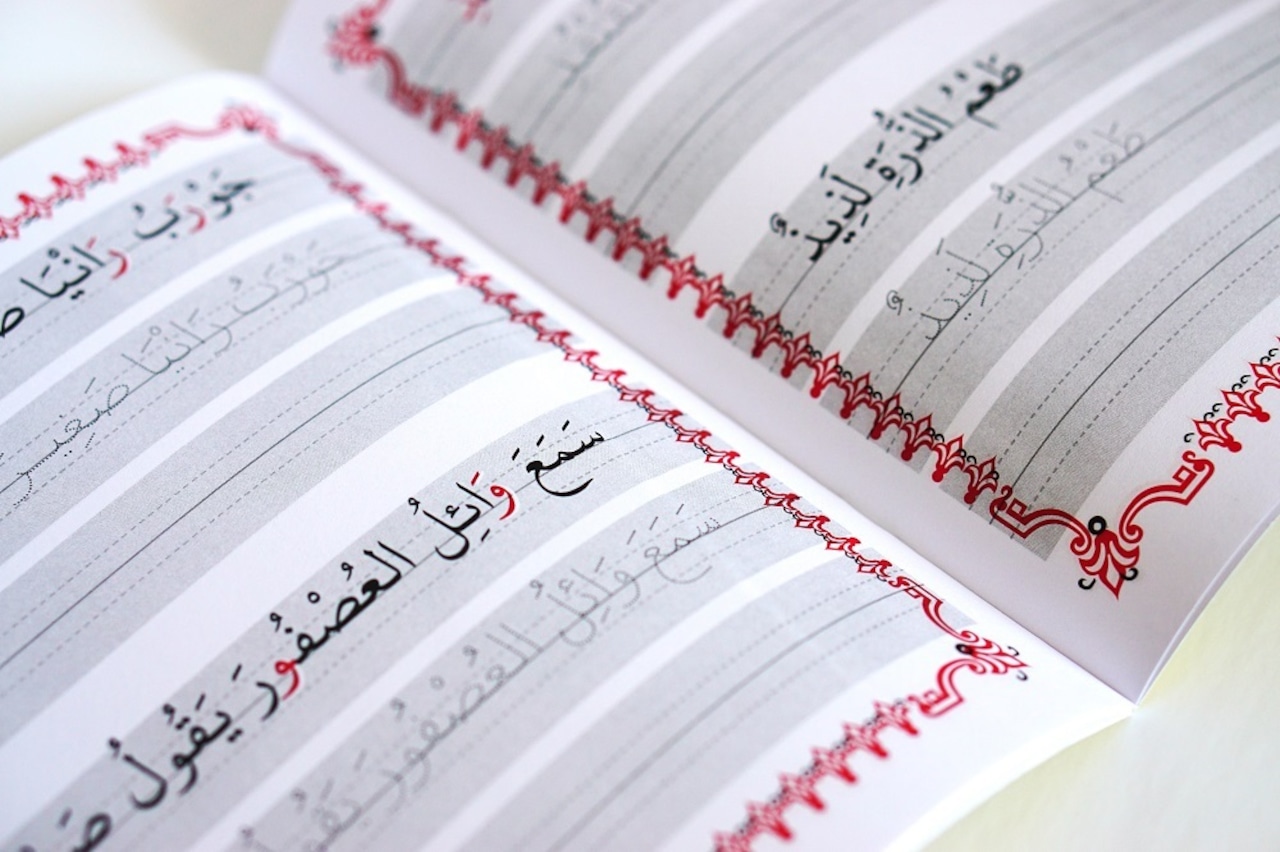 جَوْرَبُ رَانْيَا
جَوْرَبُ رَانْيَا صَغِير
سَمَعَ وَائِلُ العُصْفُورَ يَقُولُ
سَمَعَ وَائِلُ العُصْفُورَ يَقُولُ
طَعْمُ الذُّرَةِ لَذِيذٌ
طَعْمُ الذُّرَةِ لَذِيذٌ